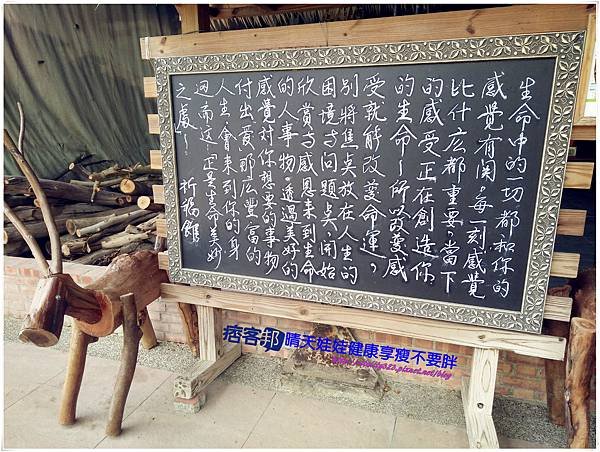 生命中的一切都和你的
感覺有関。每一刻感覺
比什庅都重要。當下
的感受正在創造你
的生命~所以改變感
受就能改變命運。
別將焦奌放在人生的
困境与问題奌,開始
欣賞与感恩来到生命
的人事物透過美好的
感覺対你想要的事物
付出愛那庅豐富的
人生會来到你的身
週而這~正是生命美妙
之處~ 祈福館
痞客邦 晴天娃娃健康享瘦不要胖